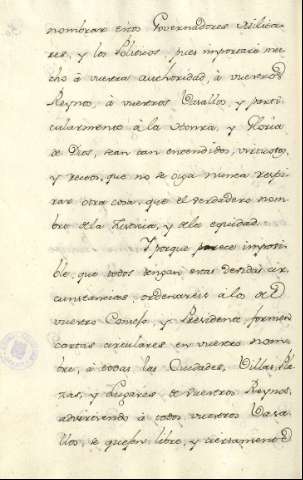 nombrar estos Governadores Milita
res, y los Politicos, pues importará mu
cho á vuestra authoridad, á vuestros
Reynos, á vuestros Vasallos, y parti
cularmente á la Honra, y Gloria
de Dios, sean tan entendidos, virtuosos,
y rectos, que no se oiga nunca respi
rar otra cosa, que el verdadero nom
bre de la Justicia, y de la equidad.
Y porque parece imposi
ble, que todos tengan estas devidas cir
cunstancias, ordenareis á los de
vuestro Consejo, y Presidente formen
cartas circulares en vuestro nom
bre, á todas las Ciudades, Villas, Pla
zas, y Lugares de vuestros Reynos,
advirtiendo á todos vuestros Vasa
llos, se quejen libre, y ciertamente